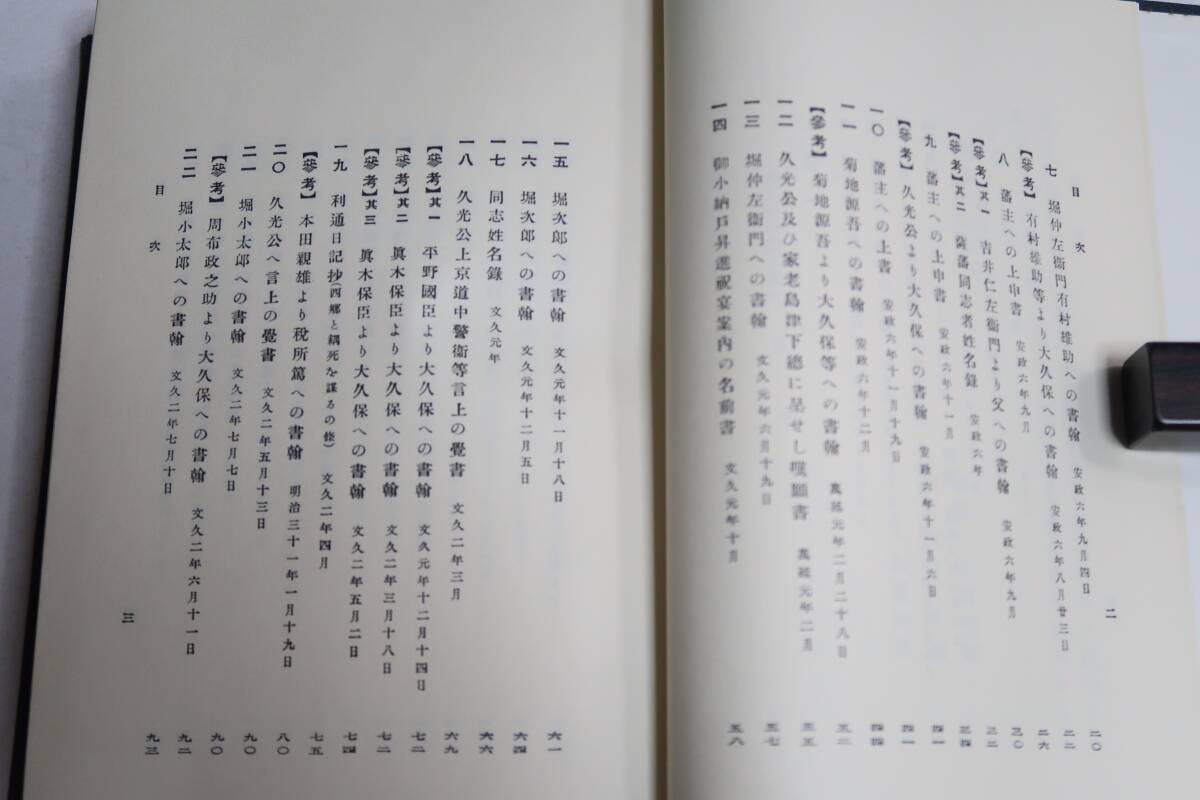 目次
二
七 堀仲左衞門有村雄助への書翰 安政六年九月四日 二〇
【參考】有村雄助等より大久保への書翰 安政六年八月廿三日 二二
八 藩主への上申書 安政六年九月 二六
【參考】其一 吉井仁左衞門より父への書翰 安政六年九月 三〇
【參考】其二 薩藩同志者姓名錄 安政六年 三二
九 藩主への上申書 安政六年十一月 三四
【參考】久光公より大久保への書翰 安政六年十一月六日 四一
一〇 藩主への上書 安政六年十一月十九日 四一
一一 菊地源吾への書翰 安政六年十二月 四四
【參考】菊地源吾より大久保等への書翰 萬延元年二月二十八日 五二
一二 久光公及ひ家老島津下總に呈せし嘆願書 萬延元年二月 五五
一三 堀仲左衞門への書翰 文久元年六月十九日 五七
一四 御小納戸昇進祝宴案内の名前書 文久元年十月 五八
一五 堀次郎への書翰 文久元年十一月十八日 六一
一六 堀次郎への書翰 文久元年十二月五日 六四
一七 同志姓名錄 文久元年 六六
一八 久光公上京道中警衞等言上の覺書 文久二年三月 六九
【參考】其一 平野國臣より大久保への書翰 文久元年十二月十四日 七二
【參考】其二 眞木保臣より大久保への書翰 文久二年三月十八日 七二
【參考】其三 眞木保臣より大久保への書翰 文久二年五月二日 七四
一九 利通日記抄(西郷と耦死を謀るの條) 文久二年四月 七五
【參考】本田親雄より税所篤への書翰 明治三十一年一月十九日 八〇
二〇 久光公へ言上の覺書 文久二年五月十三日 九〇
二一 堀小太郎への書翰 文久二年七月七日 九〇
【參考】周布政之助より大久保への書翰 文久二年六月十一日 九二
二二 堀小太郎への書翰 文久二年七月十日 九三
目次
三